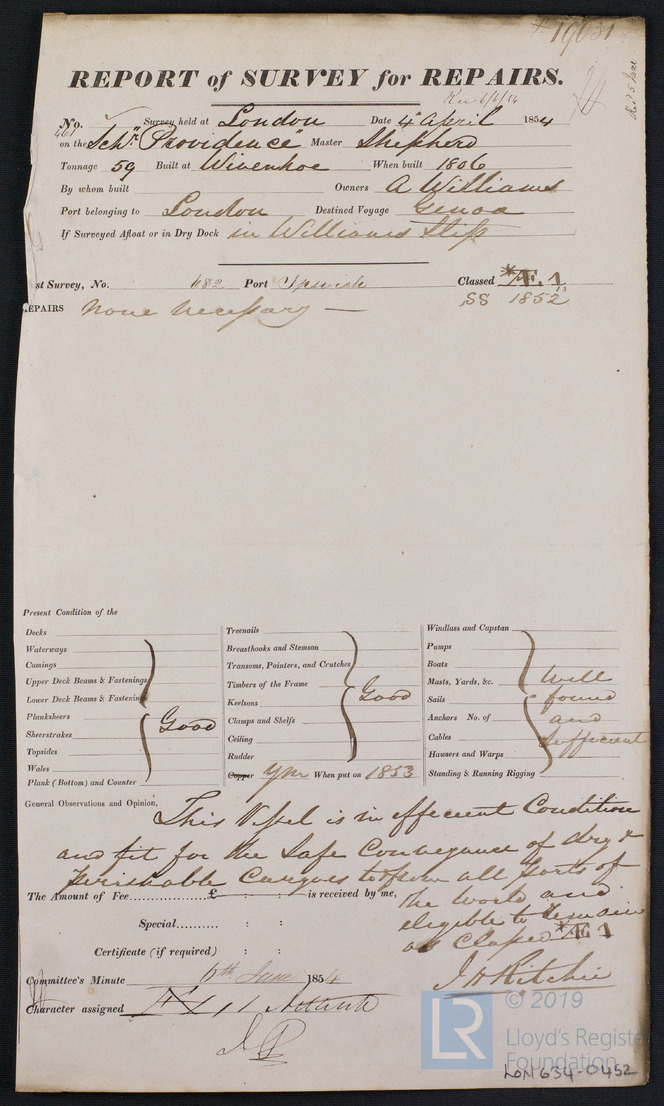 19031
REPORT of SURVEY for REPAIRS.
Rec 5 June
No. 461 Survey held at London Date 4 April 1854
on the Schr "Providence" Master Shepherd
Tonnage 59 Built at Wivenhoe When built 1806
By whom built Owners A Williams
Port belonging to London Destined Voyage Genoa
If Surveyed Afloat or in Dry Dock in Williams Slip
st Survey, No. 682 Port Ipswich Classed *Æ 1
SS 1852
EPAIRS None necessary
Present Condition of the
Decks
Waterways
Comings
Upper Deck Beams & Fastenings
Lower Deck Beams & Fastenings
Planksheers
Sheerstrakes
Topsides
Wales
Plank (Bottom) and Counter
Good
Treenails
Breasthooks and Stemson
Transoms, Pointers, and Crutches
Timbers of the Frame
Keelsons
Clamps and Shelfs
Ceiling
Rudder
Good
Copper Ym When put on 1853
Windlass and Capstan
Pumps
Boats
Masts, Yards, &c.
Sails
Anchors No. of
Cables
Hausers and Warps
Standing & Running Rigging
Well
found
and
sufficient
General Observations and Opinion, This Vessel is in efficient Condition
and fit for the Safe Conveyance of dry &
perishable Cargoes to & from all parts of
the World and
eligible to remain
as Classed *Æ 1
The Amount of Fee £ : : is received by me,
Special : :
Certificate (if required) : :
J H Ritchie
Committee's Minute 6th June 1854
Character assigned
LR
© 2019
Lloyd's Registe
Foundation
LON634-0452